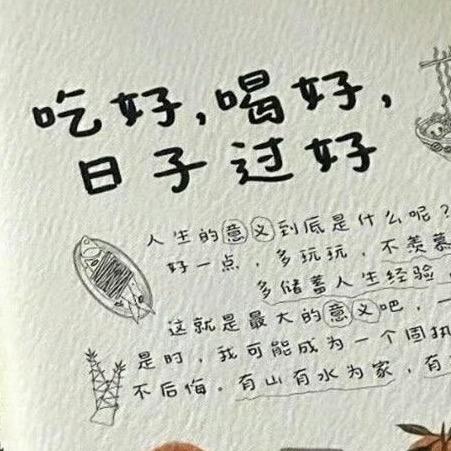 吃好,喝好,
日子过好
人生的意义到底是什么呢?
好一点,多玩玩,不羡慕
多储蓄人生经验,
这就是最大的意义吧,一
是时,我可能成为一个固执
不后悔。有山有水为家,有